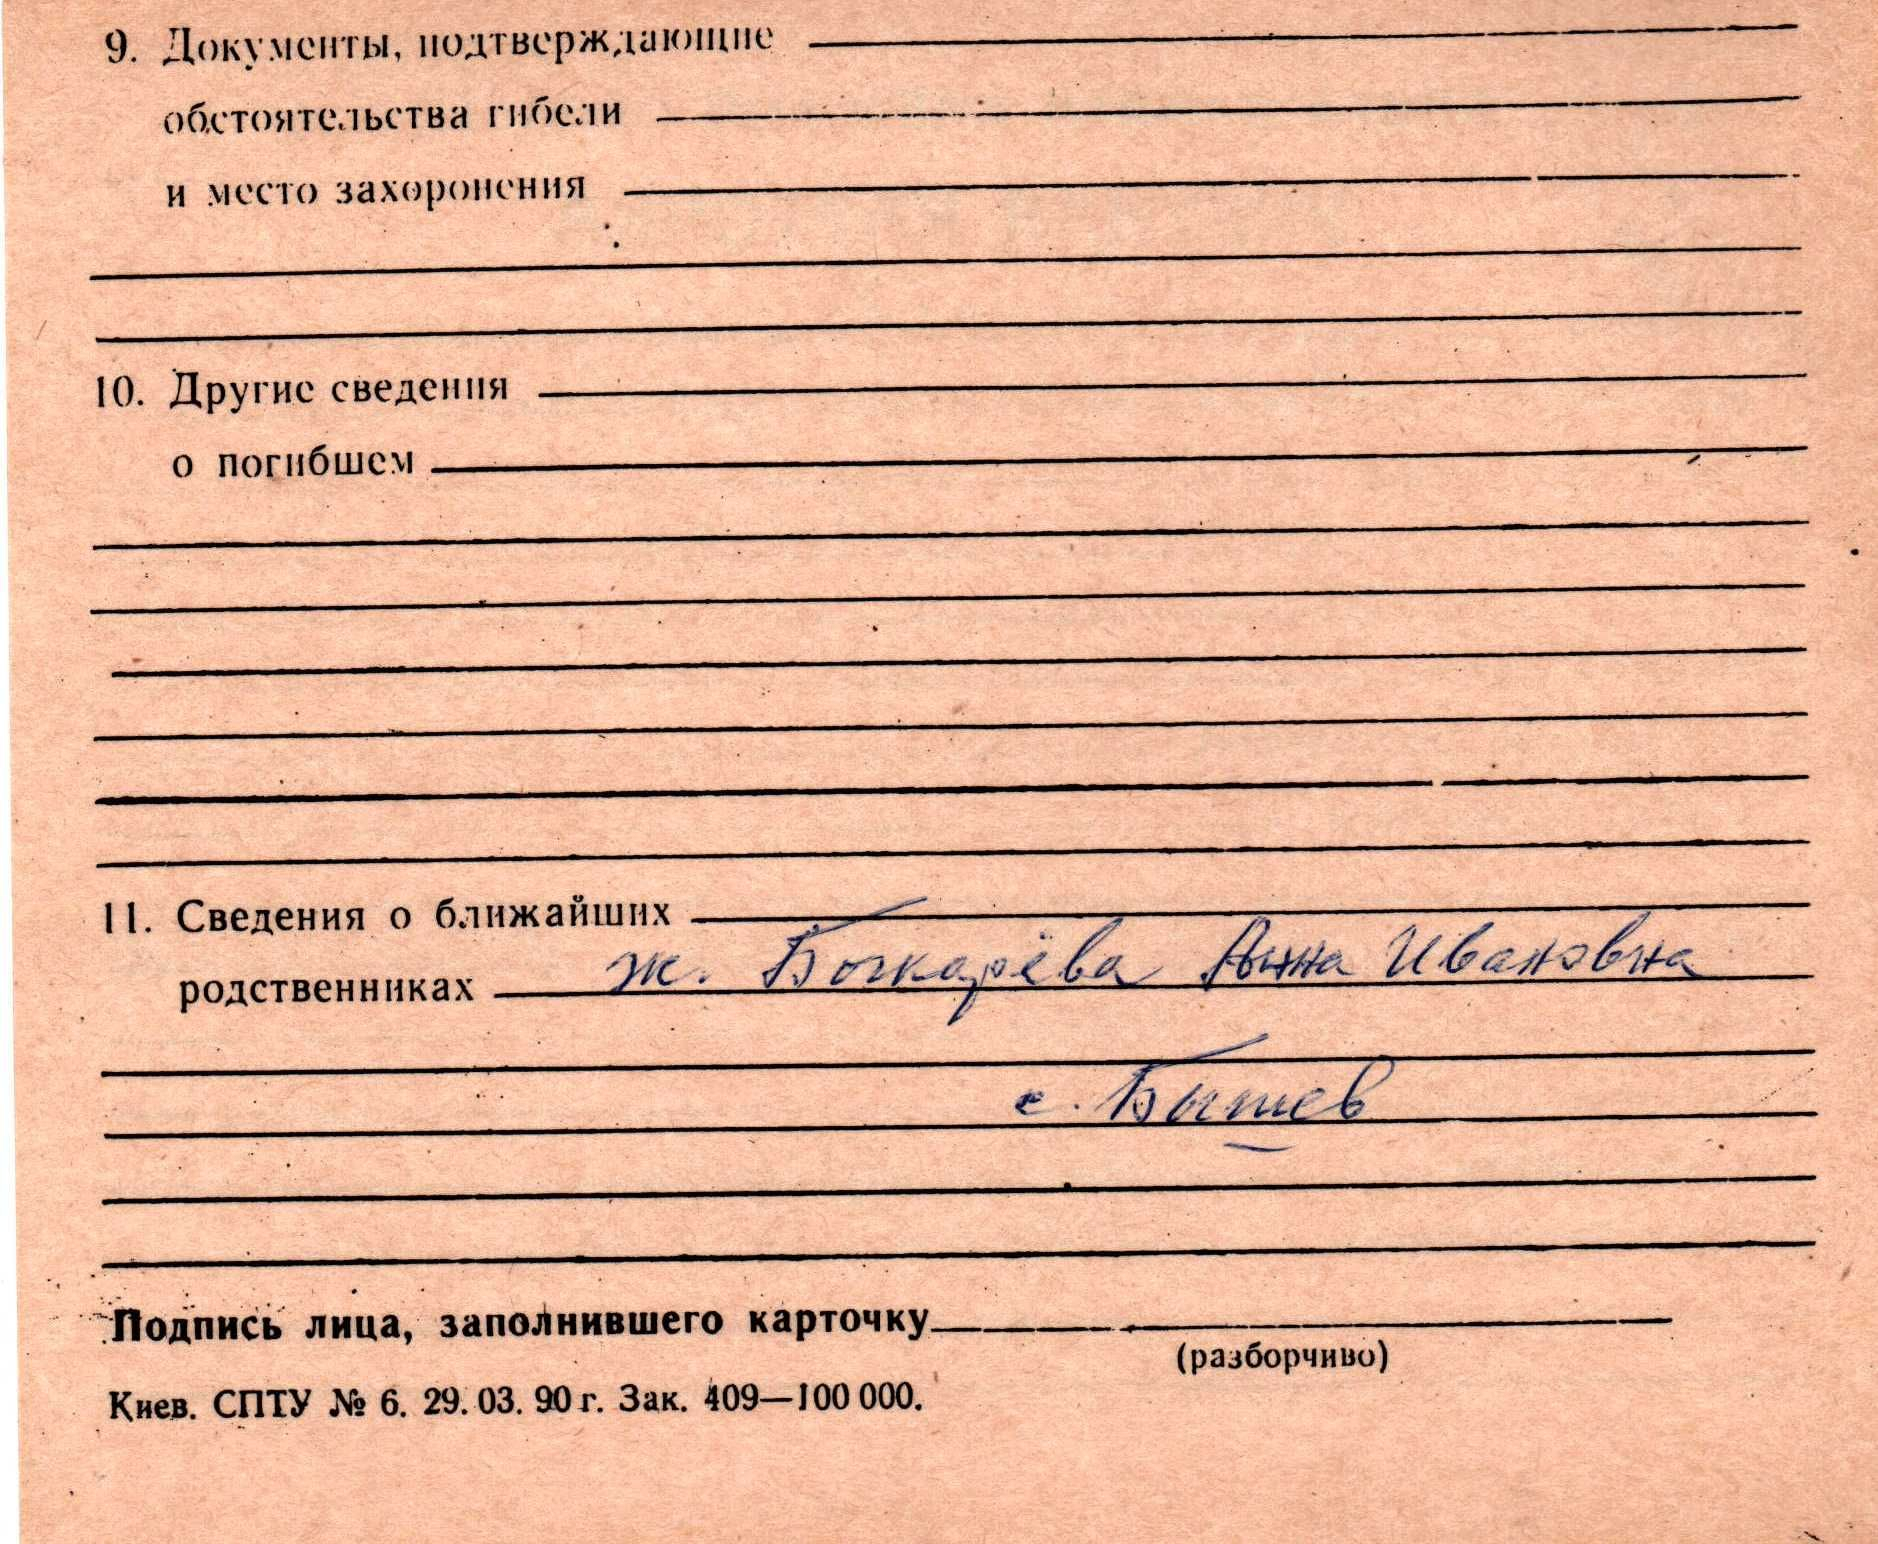 9. Документы, подтверждающие
обстоятельства гибели
и место захоронения
10. Другие сведения
о погибшем
11. Сведения о ближайших
родственниках ж. Бочкарёва Анна Ивановна
с. Бышев
Подпись лица, заполнившего карточку
(разборчиво)
Киев. СПТУ № 6. 29. 03. 90 г. Зак. 409—100 000.